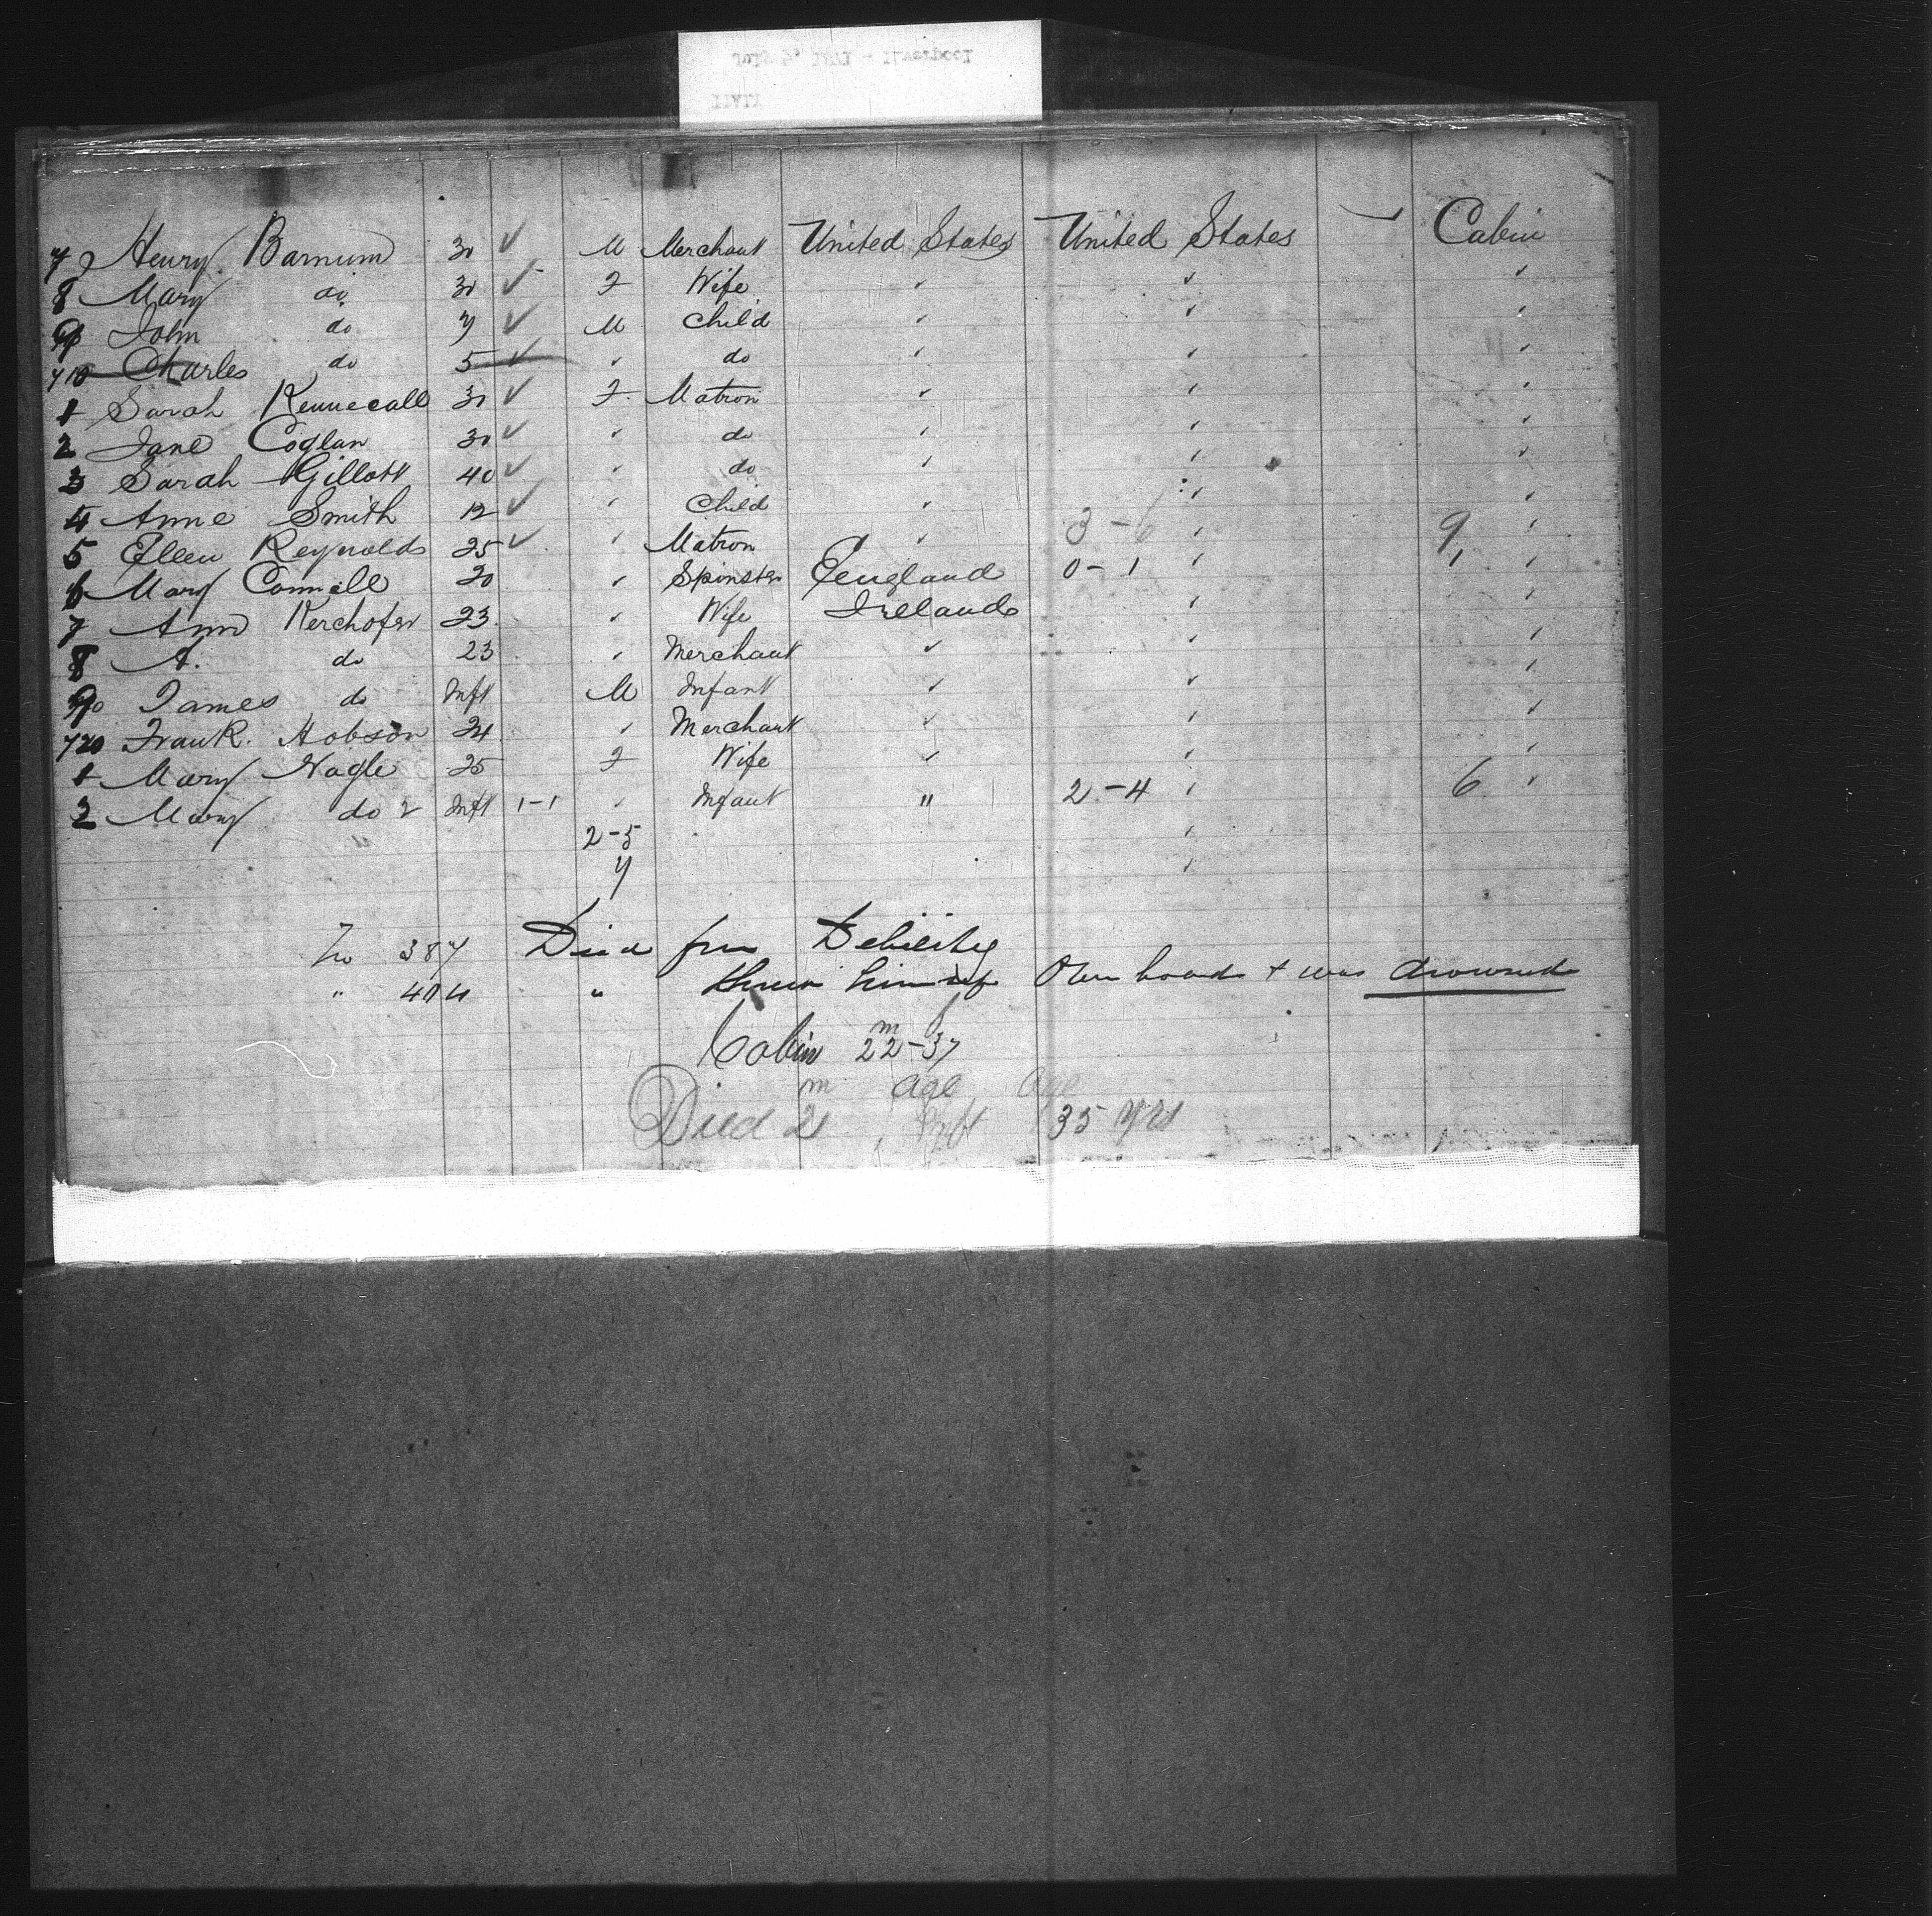 July 6, 1871 - Liverpool
7 Henry Barnum 30 ✓ M Merchant United States United States Cabin
8 Mary do 30 ✓ F Wife ✓ ✓ ✓
9 John do 7 ✓ M Child ✓ ✓ ✓
710 Charles do 5 ✓ " do ✓ ✓ ✓
1 Sarah Kennecall 30 ✓ F. Matron ✓ ✓ ✓
2 Jane Coglan 30 ✓ " do " " "
3 Sarah Gillott 40 ✓ " do " " "
4 Anne Smith 12 ✓ " Child " " "
5 Ellen Reynolds 25 ✓ " Matron " 3-6 " 9 "
6 Mary Connell 20 " Spinster England 0-1 " 1 "
7 Ann Kerchofer 23 " Wife Ireland " "
8 A. do 23 " Merchant ✓ " "
9 James do Inft M Infant " " "
720 Frank. Hobson 24 " Merchant " " "
1 Mary Nagle 25 F Wife " " "
2 Mary do 2 Inft 1-1 " Infant " 2-4 " 6 "
2-5 "
7 "
No 387 Died from Debility
" 404 " threw himself Over board + was drowned
Cabin m 22-37
m age age
Died 2 Inft 35 yrs